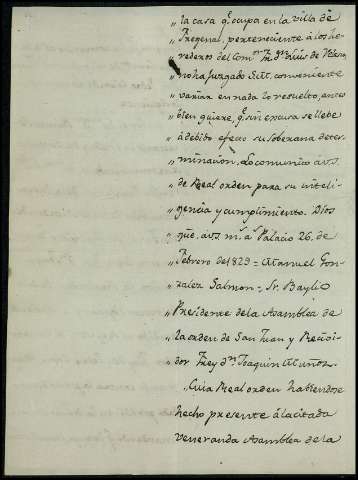 „ la casa q.e ocupa en la villa de
„ Fregenal, perteneciente á los he-
„ rederos del Com.or Fr. d.n Luis de
„ no ha juzgado S.M. conveniente
„ variar en nada lo resuelto, antes
„ bien quiere, q.e sin escusa se llebe
„ á debido efecto su soberana deter-
„ minacion. Lo comunico á V.S.
„ de Real orden para su inteli-
„ gencia y cumplimiento. Dios
„ gũe. á V.S. m.s a.s Palacio 26. de
„ Febrero de 1829 = Manuel Gon-
„ zalez Salmon = Sr. Baylio
„ Presidente de la Asamblea de
„ la orden de San Juan y Recivi-
„ dor Frey d.n Joaquin Muñoz.
Cuia Real orden habiendose
hecho presente á la citada
veneranda Asamblea de la